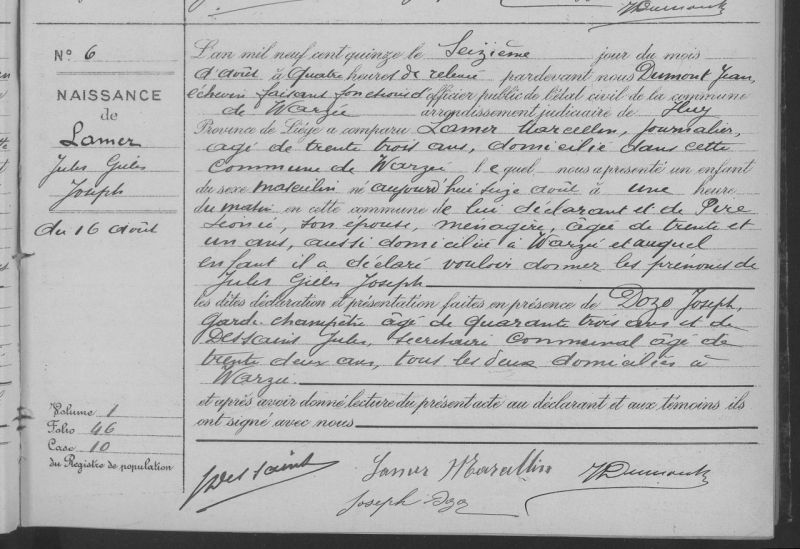 N° 6
NAISSANCE
de
Lamer
Jules Gielès
Joseph
du 16 août
Volume 1
Folio 46
Case 10
du Registre de population
L'an mil neuf cent quinze le Seizième jour du mois
d'août à quatre heures de relevée pardevant nous Dumont Jean,
échevin faisant fonctions d'officier public de l'état civil de la commune
de Warzée arrondissement judiciaire de Huy
Province de Liége a comparu Lamer Marcellin, journalier,
âgé de trente trois ans, domicilié dans cette
commune de Warzée lequel nous a présenté un enfant
du sexe masculin né aujourd'hui seize août à une heure
du matin en cette commune de lui déclarant et de Pire
Léonie, son épouse, ménagère, âgée de trente et
un ans, aussi domiciliée à Warzée et auquel
enfant il a déclaré vouloir donner les prénoms de
Jules Gielès Joseph
les dites déclaration et présentation faites en présence de Dozo Joseph,
garde-champêtre âgé de quarante trois ans et de
Dessaint Jules, secrétaire communal âgé de
trente deux ans, tous les deux domiciliés à
Warzée.
et après avoir donné lecture du présent acte au déclarant et aux témoins ils
ont signé avec nous
JDessaint Lamer Marcellin JDumont
Joseph Dozo
JDumont